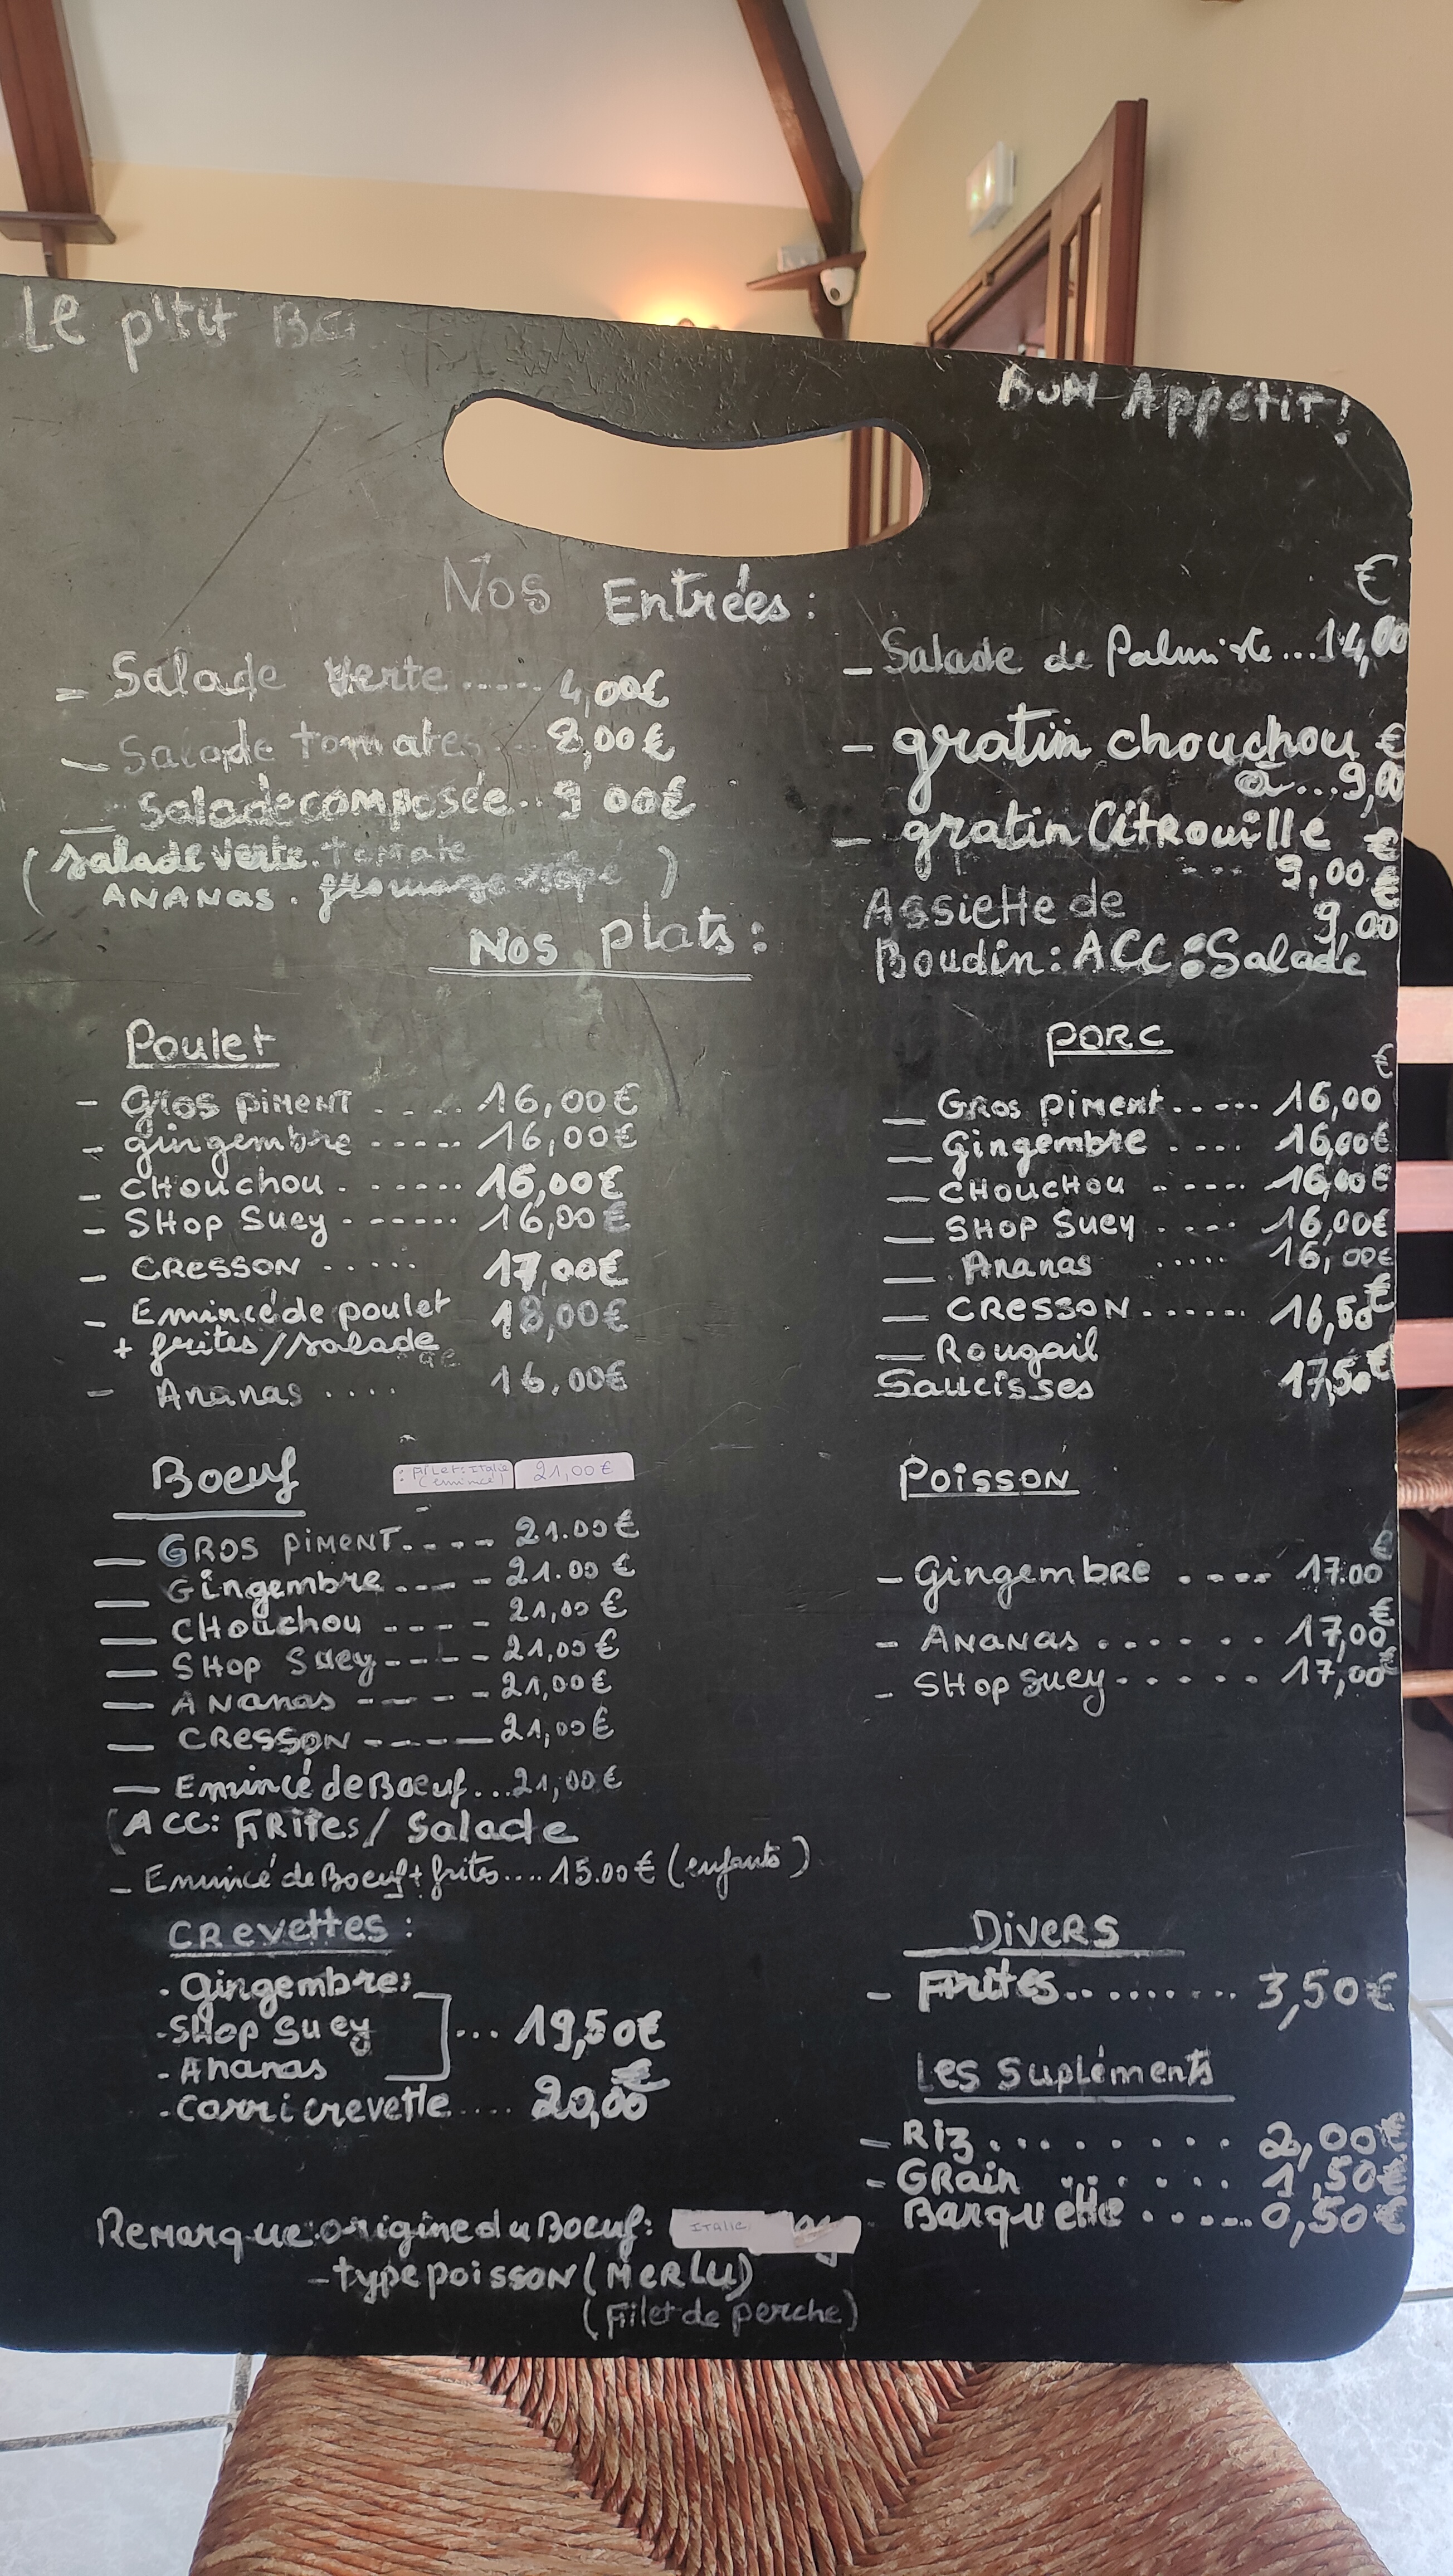 Le p'tit
BON Appétit!
Nos Entrées :
- Salade verte ..... 4,00€
- Salade tomates ... 8,00€
- Salade composée.. 9 00€
(salade verte. tomate
ANANAS. fromage )
€
- Salade de Palmiste ...14,00
- gratin chouchou €
à...9,00
- gratin Citrouille €
... 9,00 €
Assiette de 9,00
Boudin: ACC: Salade
Nos plats :
Poulet
- Gros PIMENT ..... 16,00€
- gingembre ..... 16,00€
- CHouchou . ...... 16,00€
- SHop Suey . ...... 16,00€
- CRESSON ..... 17,00€
- Emincé de poulet 18,00€
+ frites//salade
- Ananas .... 16,00€
PORC
€
- Gros Piment...... 16,00
- Gingembre .... 16,00€
- CHOUCHOU .... 16,00€
- SHOP Suey .... 16,00€
- Ananas ..... 16,00€
- CRESSON...... 16,50€
- Rougail
Saucisses 17,50€
Boeuf : FiLet: Italie 21,00€
(émincé)
- GROS PiMENT.---- 21.00€
- Gingembre ---- 21.00€
- CHouchou ---- 21,00€
- SHop Suey ---- 21,00€
- ANanas ---- 21,00€
- CRESSON ---- 21,00€
- Emincé de Boeuf...21,00€
(ACC: FRites/ Salade
- Emincé de Boeuf + frites....15.00€ (enfants)
Poisson
€
- Gingembre .... 17.00
- ANANAS ...... 17,00€
- SHop Suey...... 17,00€
CRevettes :
. Gingembre:
- SHop Suey ... 19,50€
- Ananas
- Carri crevette.... 20,00€
Divers
- Frites......... 3,50€
Les Supléments
- Riz......... 2,00€
- GRain ...... 1,50€
Barquette ...... 0,50€
Remarque: origine du Boeuf: ITALIE
- type poisson (MERLU)
(Filet de perche)